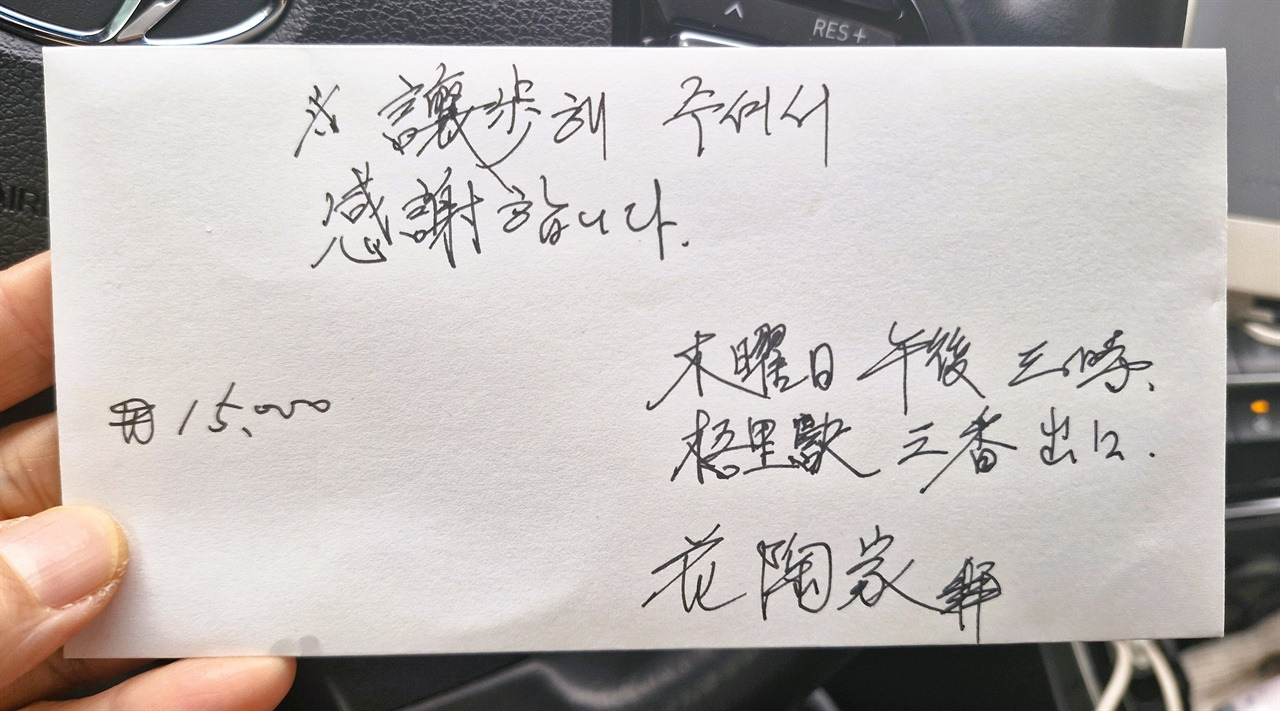 RES+
※ 讓步해 주어서
感謝합니다.
木曜日 午後 三時.
梧里驛 三番 出口.
₩15,000
花陶家 拜